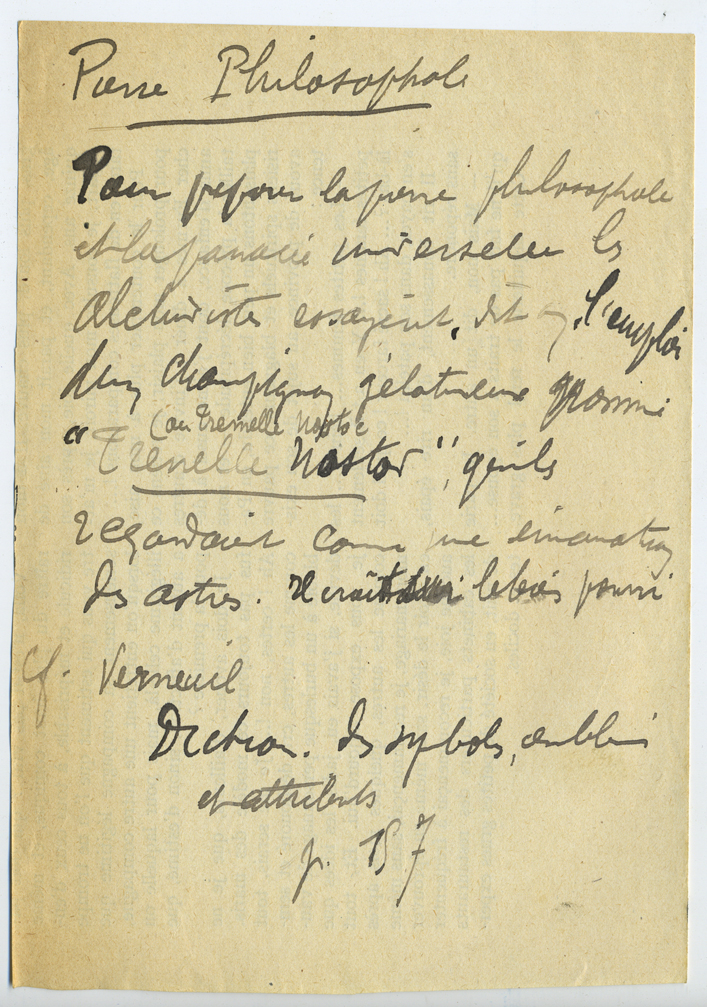 Pierre Philosophale
Pour preparer la pierre philosophale
et la panacée universelle les
alchimistes essayèrent, dit on, l'emploi
d'un champignon gélatineux
(ou Tremelle Nostoc
"Trenelle Nostor", qu'ils
regardaient comme une émanation
des astres. Il croît sur le bois pourri
Cf. Verneuil
Diction. des symboles, emblèmes
et attributs
p. 157